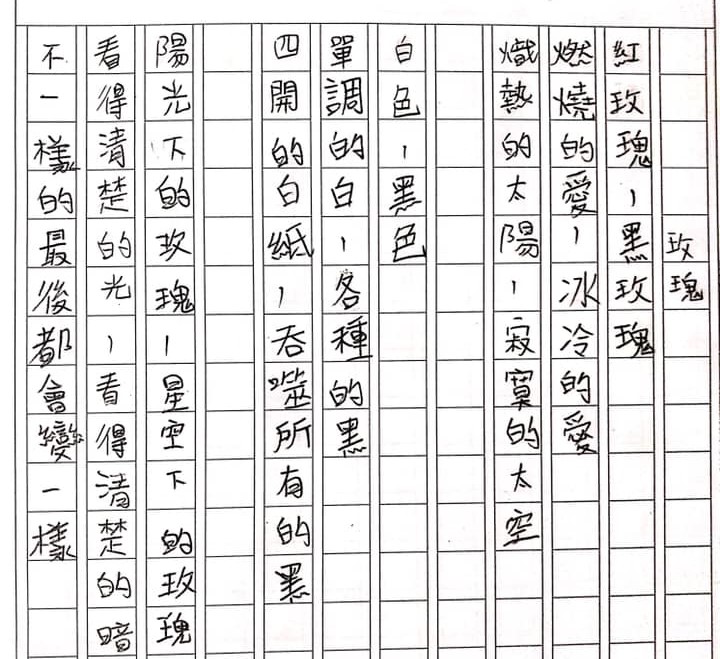 玫瑰
紅玫瑰，黑玫瑰
燃燒的愛，冰冷的愛
熾熱的太陽，寂寞的太空
白色，黑色
單調的白，各種的黑
四開的白紙，吞噬所有的黑
陽光下的玫瑰，星空下的玫瑰
看得清楚的光，看得清楚的暗
不一樣的最後都會變一樣